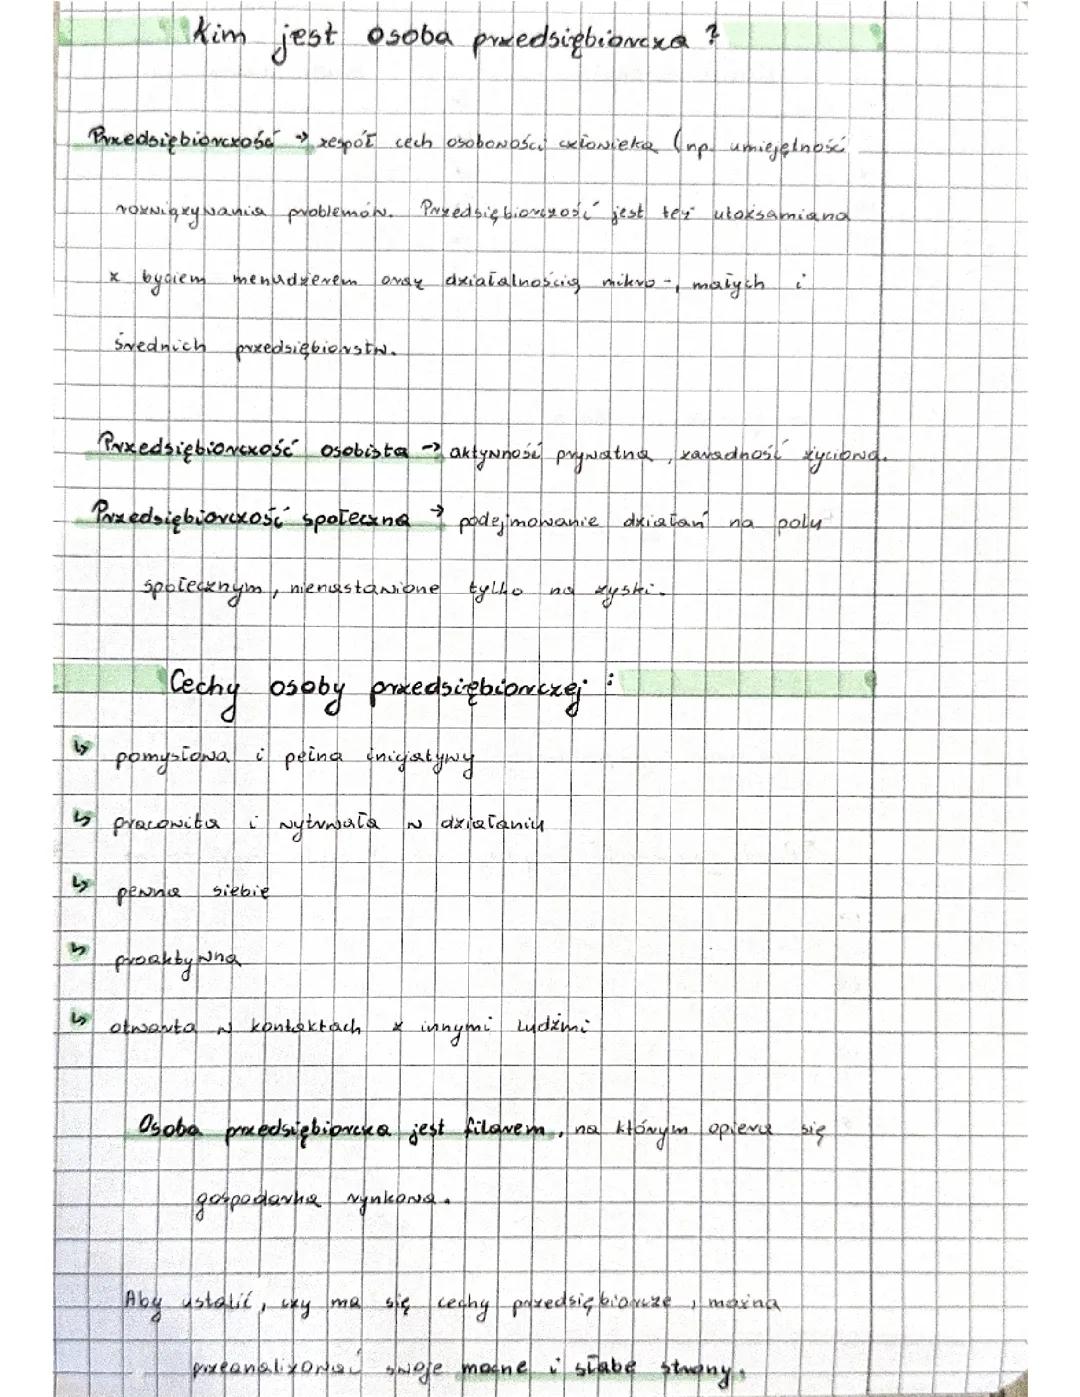 Kim jest osoba przedsiębiorcza ?
Przedsiębiorczość → zespół cech osobowości człowieka (np. umiejętność
rozwiązywania problemów. Przedsiębiorczość jest też utożsamiana
z byciem menadżerem oraz działalnością mikro-, małych i
średnich przedsiębiorstw.
Przedsiębiorczość osobista → aktywność prywatna, zaradność życiowa.
Przedsiębiorczość społeczna → podejmowanie działań na polu
społecznym, nienastawione tylko na zyski.
Cechy osoby przedsiębiorczej :
↳ pomysłowa i pełna inicjatywy
↳ pracowita i wytrwała w działaniu
↳ pewna siebie
↳ proaktywna
↳ otwarta w kontaktach z innymi ludźmi
Osoba przedsiębiorcza jest filarem, na którym opiera się
gospodarka rynkowa.
Aby ustalić, czy ma się cechy przedsiębiorcze, można
przeanalizować swoje mocne i słabe strony.